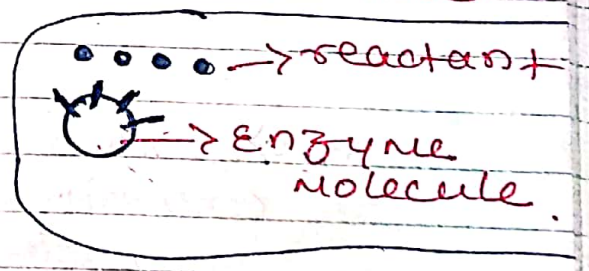 reactant
Enzyme
Molecule.